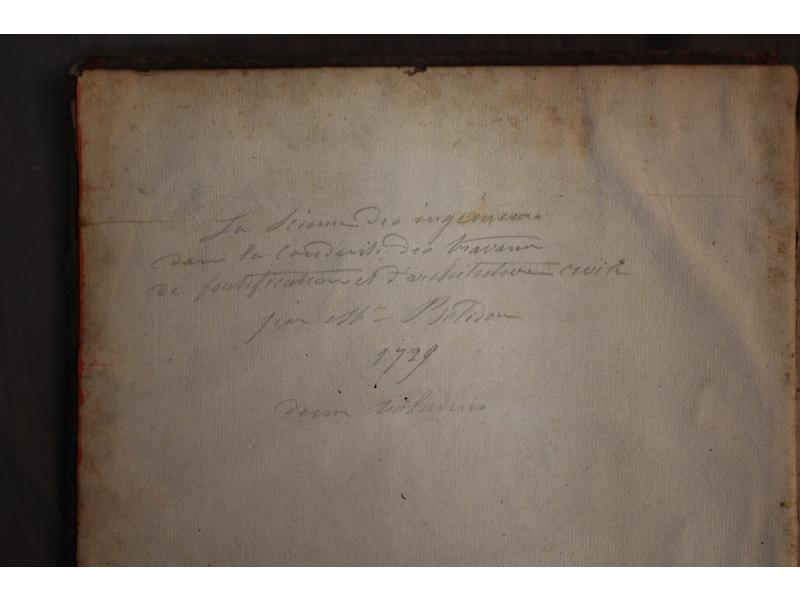 La Science des ingénieurs
dans la conduite des travaux
de fortification et d'architecture civile
par Mr Belidor
1729
deux volumes